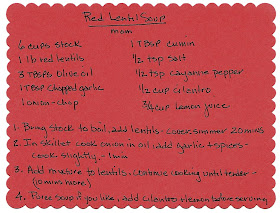 Red Lentil Soup
mom
6 cups stock
1 lb red lentils
3 TBSPs Olive oil
1 TBSP chopped garlic
1 onion - chop
1 TBSP cumin
1/2 tsp salt
1/2 tsp cayenne pepper
1/2 cup cilantro
3/4 cup lemon juice
1. Bring stock to boil, add lentils - cook simmer 20 mins
2. In skillet cook onion in oil, add garlic & spices -
cook slightly - 1 min
3. Add mixture to lentils - continue cooking until tender -
10 min more)
4. Puree soup if you like, add cilantro + lemon before serving